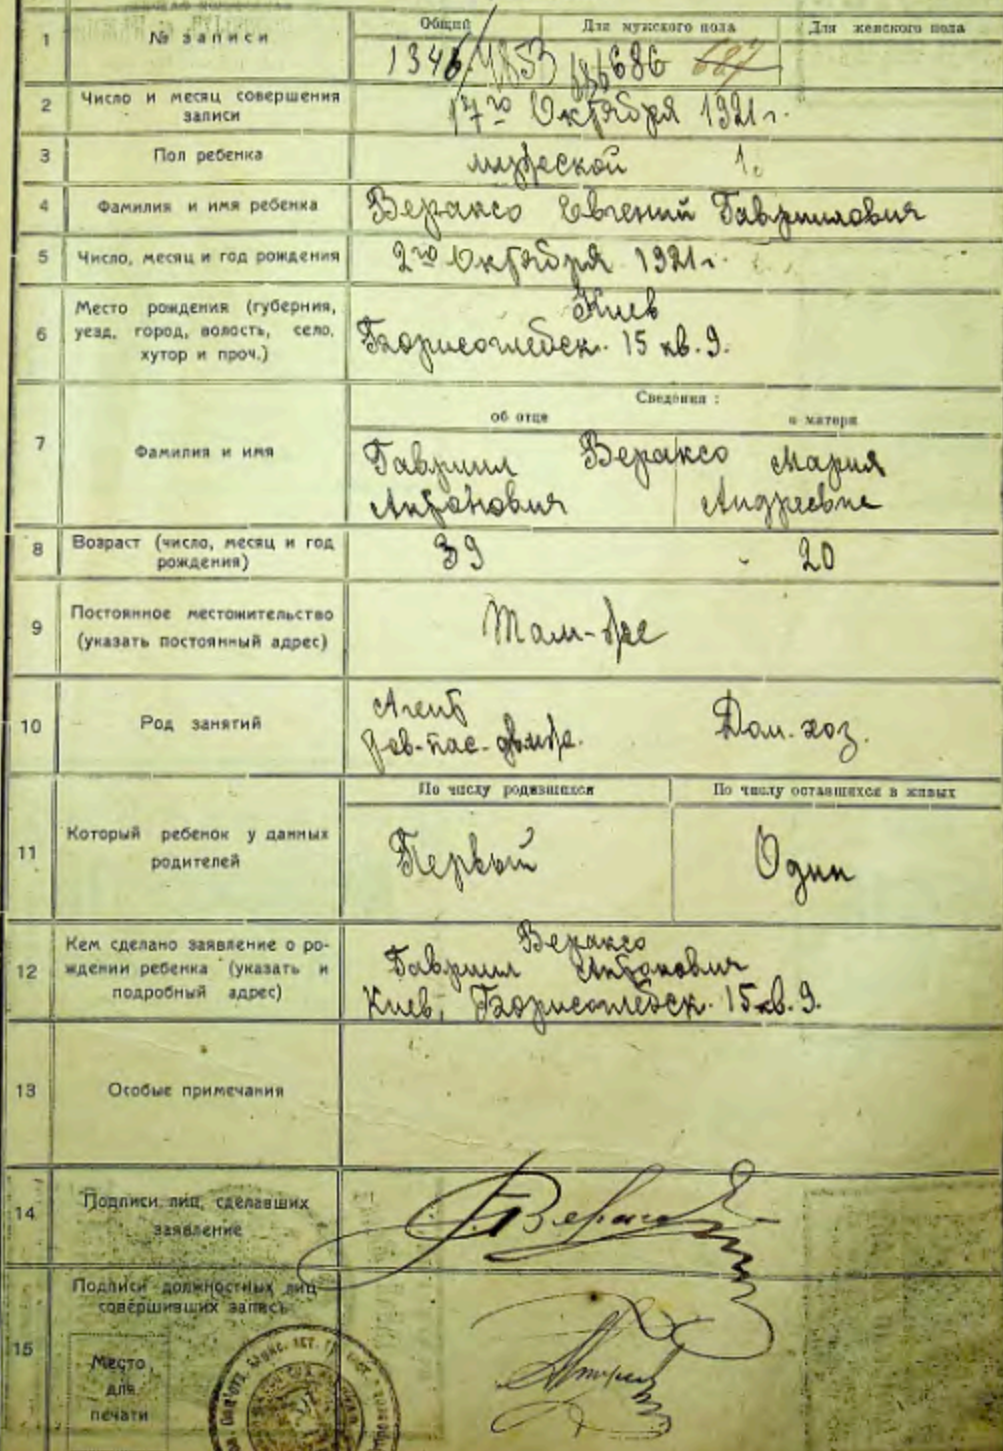 1
№ записи
Общий
Для мужского пола
Для женского пола
1346/1853
686
687
2
Число и месяц совершения
записи
17го Октября 1921 г.
3
Пол ребенка
мужеской 1.
4
Фамилия и имя ребенка
Вераксо Евгений Гавриилович
5
Число, месяц и год рождения
2го Октября 1921 г.
6
Место рождения (губерния,
уезд, город, волость, село,
хутор и проч.)
Киев
Борисоглебск. 15 кв. 9.
7
Фамилия и имя
Сведения :
об отце
о матери
Гавриил Вераксо Мария
Антонович Андреевна
8
Возраст (число, месяц и год
рождения)
39 - 20
9
Постоянное местожительство
(указать постоянный адрес)
Там-же
10
Род занятий
Агент
Дом. хоз.
11
Который ребенок у данных
родителей
По числу родившихся
По числу оставшихся в живых
Первый
Один
12
Кем сделано заявление о ро-
ждении ребенка (указать и
подробный адрес)
Вераксо
Гавриил Антонович
Киев, Борисоглебск. 15 кв. 9.
13
Особые примечания
14
Подписи лиц, сделавших
заявление
15
Подписи должностных лиц
совершивших запись
Место
для
печати